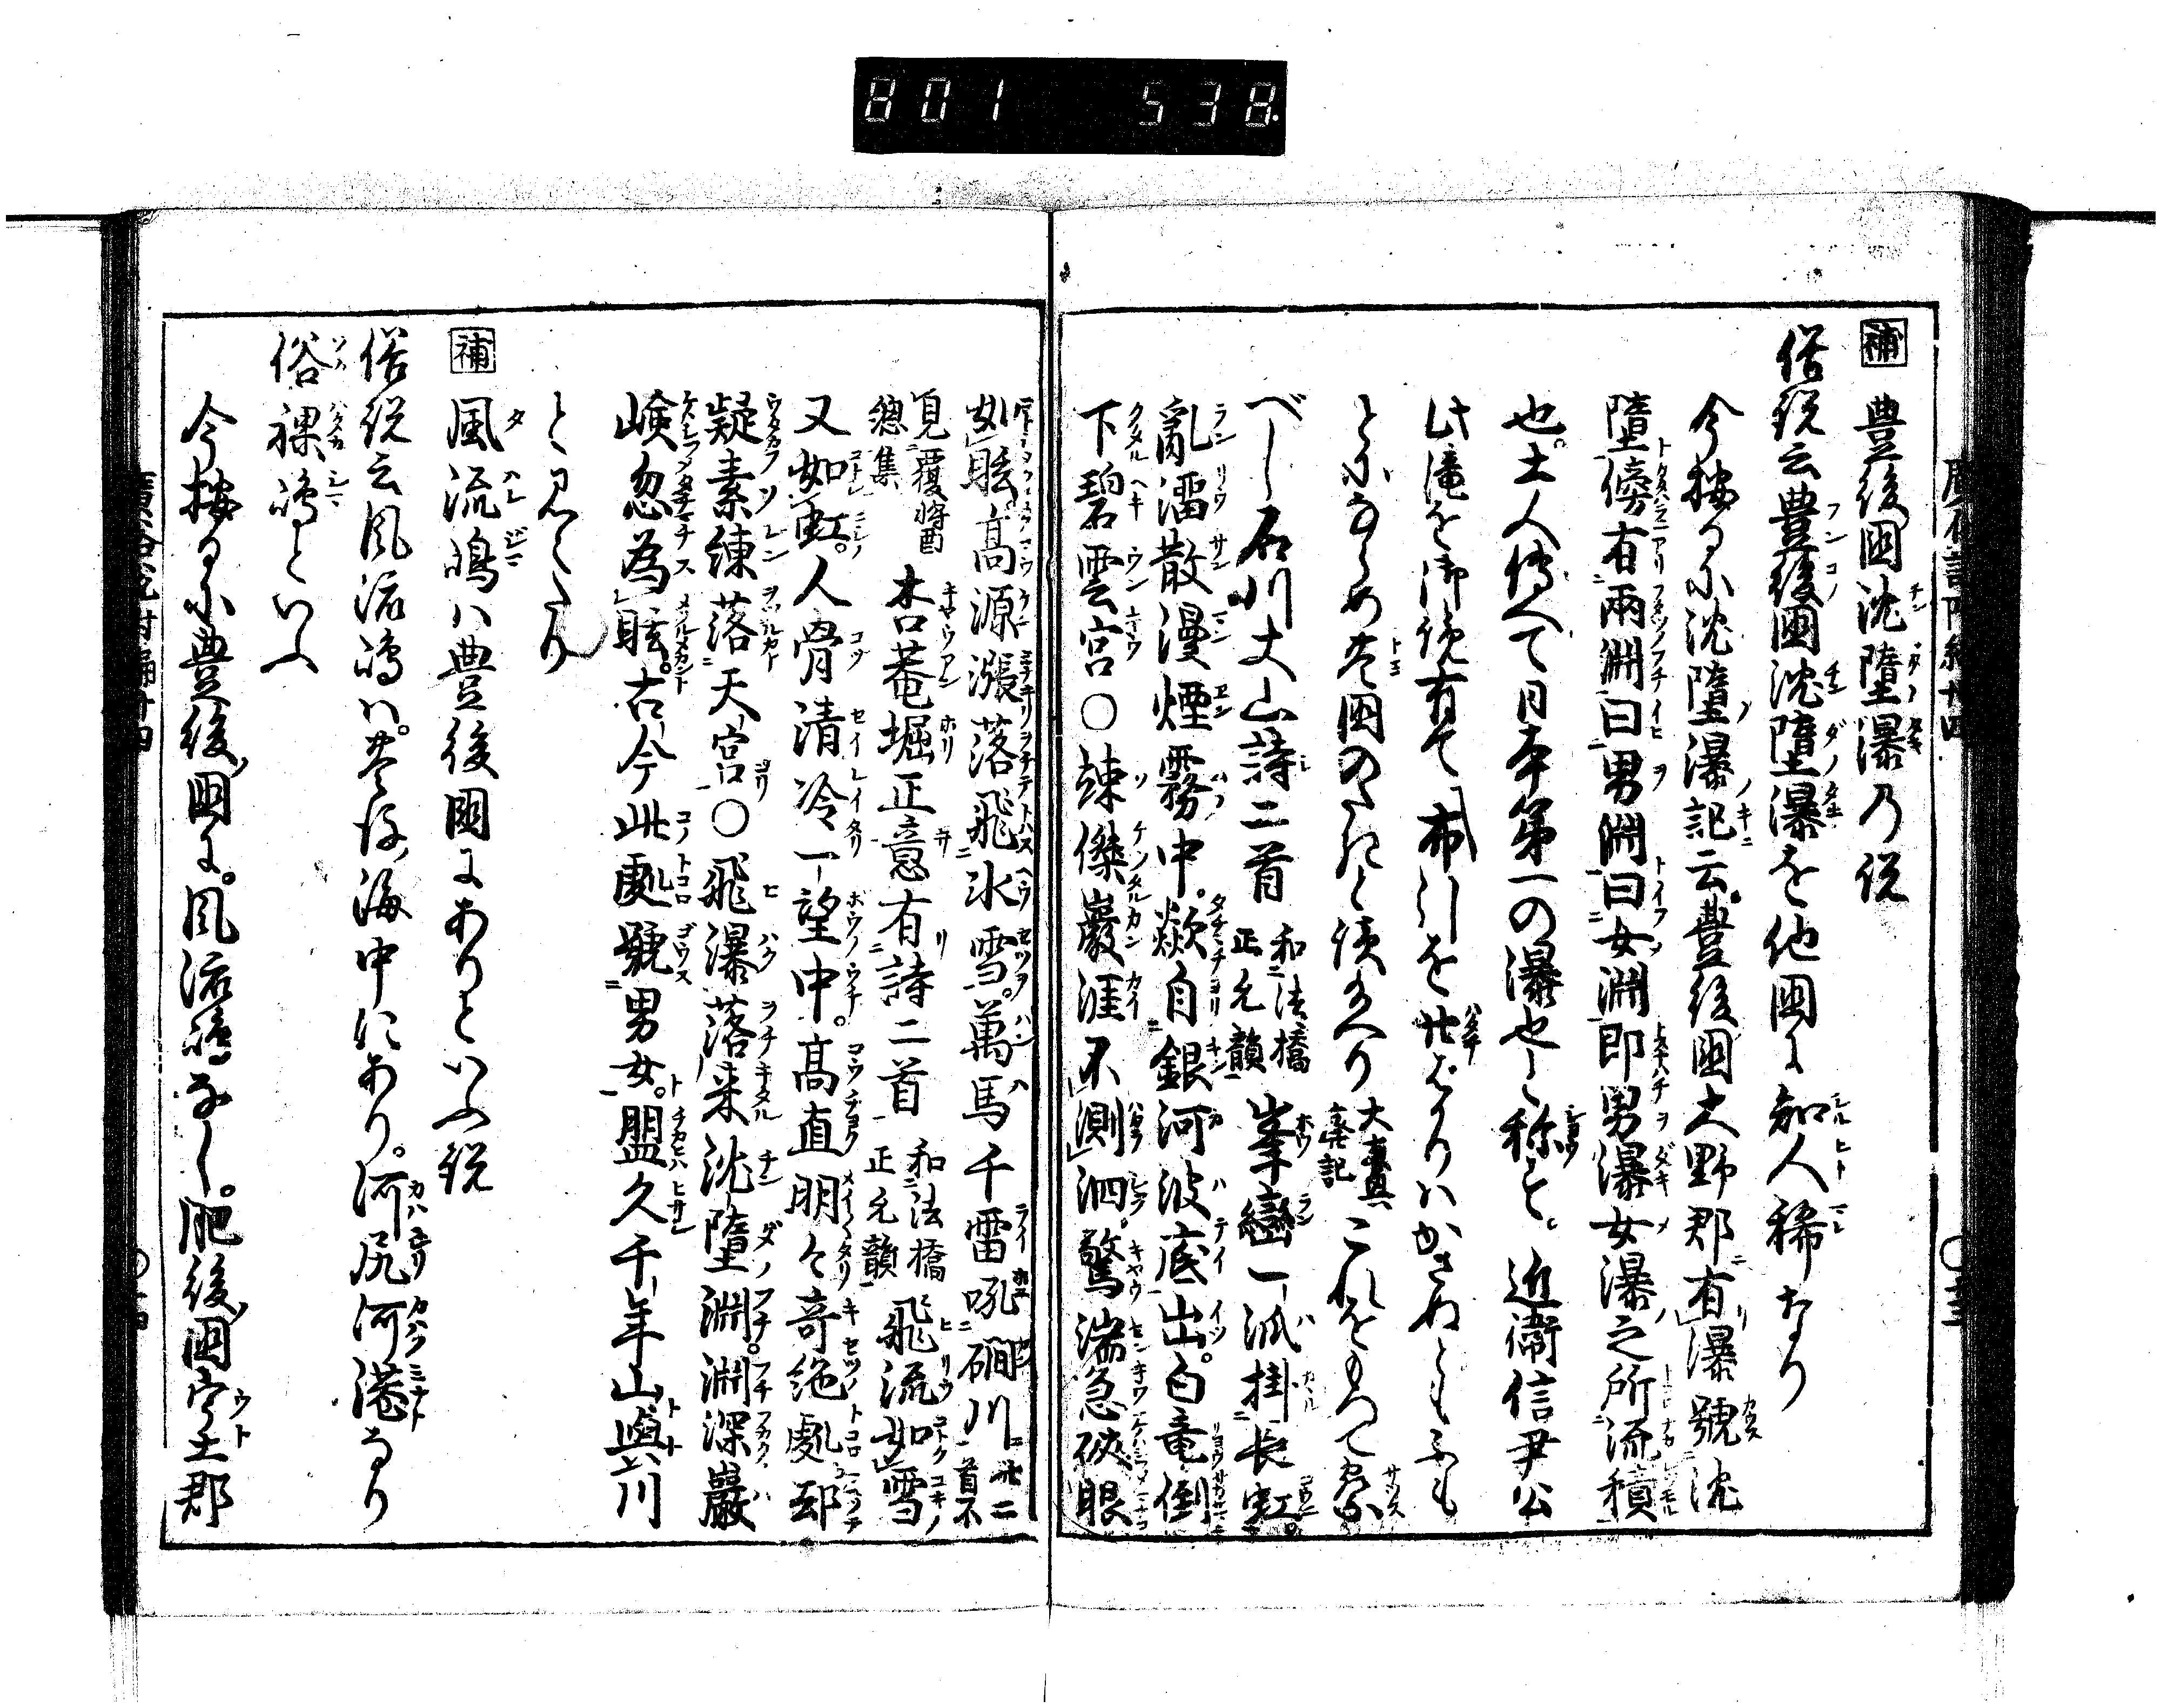 801 538
補 豊後國沈墮瀑乃説
俗説云豊後國沈墮瀑を他国に知人稀なり
今按るに沈墮瀑記云豊後國大野郡有瀑號沈
墮傍有兩淵曰男淵曰女淵即男瀑女瀑之所流積
也土人傳へて日本第一の瀑也と称と。近衞信尹公
此滝を御覧有て布引を廿ばかりハかさねとも
國のたきと讀給へり これをもつて察
べし石川丈山詩二首 和法橋正允韻 峯巒一派掛長虹。
亂溜散漫煙霧中。歘自銀河波底出。白竜倒
下碧雲宮〇竦傑巖涯不測泗。驚湍急硤眼
如眩。高源漲落飛氷雪。萬馬千雷吼磵川 此二首不
見覆醤總集 杏菴堀正意有詩二首 和法橋正允韻 飛流如雪
又如虹。人骨清冷一望中。高直明々奇絶處却
疑素練落天宮〇飛瀑落来沈墮淵。淵深巖
嶮忽為眩。古今此處號男女。盟久千年山與川
と見へたり
補 風流嶋ハ豊後國にありといふ説
俗説云風流嶋ハ。豊後海中にあり。河尻河港なり
俗裸嶋といふ
今按るに豊後國に。風流嶋なし。肥後国宇土郡